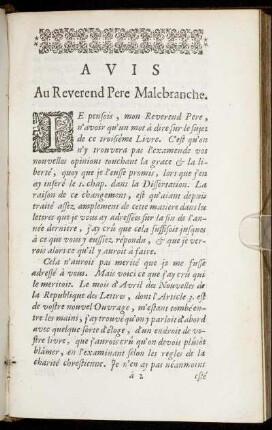 AVIS
Au Reverend Pere Malebranche.
JE pensois, mon Reverend Pere,
n'avoir qu'un mot à dire sur le sujet
de ce troisiéme Livre. C'est qu'on
n'y trouvera pas l'examen de vos
nouvelles opinions touchant la grace & la li-
berté, quoy que je l'eusse promis, lors que j'en
ay inseré le 1. chap. dans la Dissertation. La
raison de ce changement, est qu'aiant depuis
traité assez amplement de cette matiere dans les
lettres que je vous ay adressées sur la fin de l'an-
née derniere, j'ay crû que cela suffisoit jusques
à ce que vous y eussiez répondu, & que je ver-
rois alors ce qu'il y auroit à faire.
Cela n'auroit pas merité que je me fusse
adressé à vous. Mais voici ce que j'ay crû qui
le meritoit. Le mois d'Avril des Nouvelles de
la Republique des Lettres, dont l'Article 3. est
de vostre nouvel Ouvrage, m'estant tombé en-
tre les mains, j'ay trouvé qu'on y parloit d'abord
avec quelque sorte d'éloge, d'un endroit de vo-
stre livre, que j'aurois crû qu'on devois plûtôt
blâmer, en l'examinant selon les regles de la
charité chrestienne. Je n'en ay pas néanmoins
â 2 esté